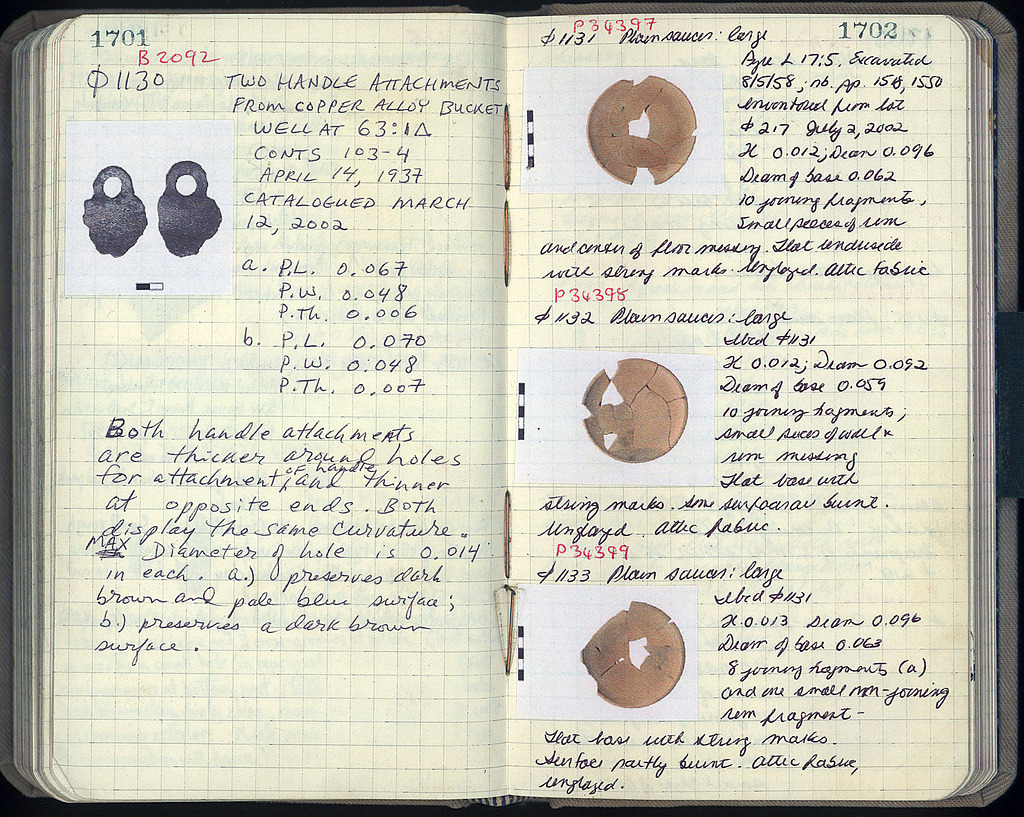 1701
B 2092
Φ1130 TWO HANDLE ATTACHMENTS
FROM COPPER ALLOY BUCKET
WELL AT 63:ΙΔ
CONTS 103-4
APRIL 14, 1937
CATALOGUED MARCH
12, 2002
a. P.L. 0.067
P.W. 0.048
P.Th. 0.006
b. P.L. 0.070
P.W. 0.048
P.Th. 0.007
Both handle attachments
are thicker around holes
for attachment, of handle, and thinner
at opposite ends. Both
display the same curvature.
MAX Diameter of hole is 0.014
in each. a.) preserves dark
brown and pale blue surface;
b.) preserves a dark brown
surface.
1702
P34397
Φ1131 Plain saucer: large
Pyre L 17:5. Excavated
8/5/58; nb. pp. 1518, 1550
inventoried from lot
Φ217 July 2, 2002
H 0.012; Diam 0.096
Diam of base 0.062
10 joining fragments,
Small pieces of rim
and center of floor missing. Flat underside
with string marks. Unglazed. Attic fabric
P34398
Φ1132 Plain saucer: large
Ibid Φ1131
H 0.012; Diam 0.092
Diam of base 0.059
10 joining fragments;
small pieces of wall &
rim missing
Flat base with
string marks. Some surface burnt.
Unglazed. Attic fabric.
P34399
Φ1133 Plain saucer: large
Ibid Φ1131
H 0.013 Diam 0.096
Diam of base 0.063
8 joining fragments (a)
and one small non-joining
rim fragment-
Flat base with string marks.
Surface partly burnt. Attic fabric,
unglazed.